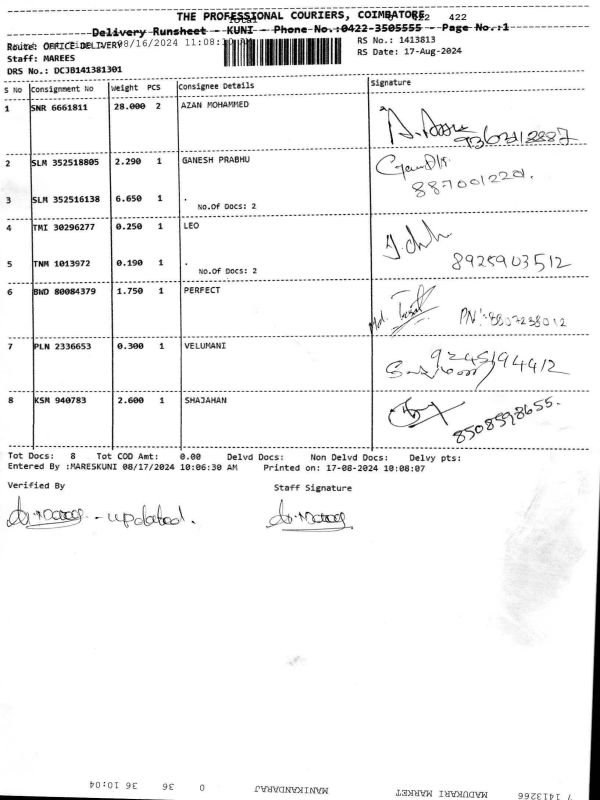 THE PROFESSIONAL COURIERS, COIMBATORE 422
Delivery Runsheet - KUNI - Phone No.:0422-3505555 - Page No.:1
Route: OFFICE DELIVERY 08/16/2024 11:08:10 AM RS No.: 1413813
Staff: MAREES RS Date: 17-Aug-2024
DRS No.: DCJB141381301
S No Consignment No Weight PCS Consignee Details Signature
1 SNR 6661811 28.000 2 AZAN MOHAMMED
9363712887
2 SLM 352518805 2.290 1 GANESH PRABHU
887001220.
3 SLM 352516138 6.650 1 .
No.Of Docs: 2
4 TMI 30296277 0.250 1 LEO
8925903512
5 TNM 1013972 0.190 1 .
No.Of Docs: 2
6 BWD 80084379 1.750 1 PERFECT
PN:-8807238012
7 PLN 2336653 0.300 1 VELUMANI
9245194412
8 KSM 940783 2.600 1 SHAJAHAN
8508598655.
Tot Docs: 8 Tot COD Amt: 0.00 Delvd Docs: Non Delvd Docs: Delvy pts:
Entered By :MARESKUNI 08/17/2024 10:06:30 AM Printed on: 17-08-2024 10:08:07
Verified By Staff Signature
- updated.
7 1413266 MADUKARI MARKET MANIKANDARAJ 0 36 36 10:04